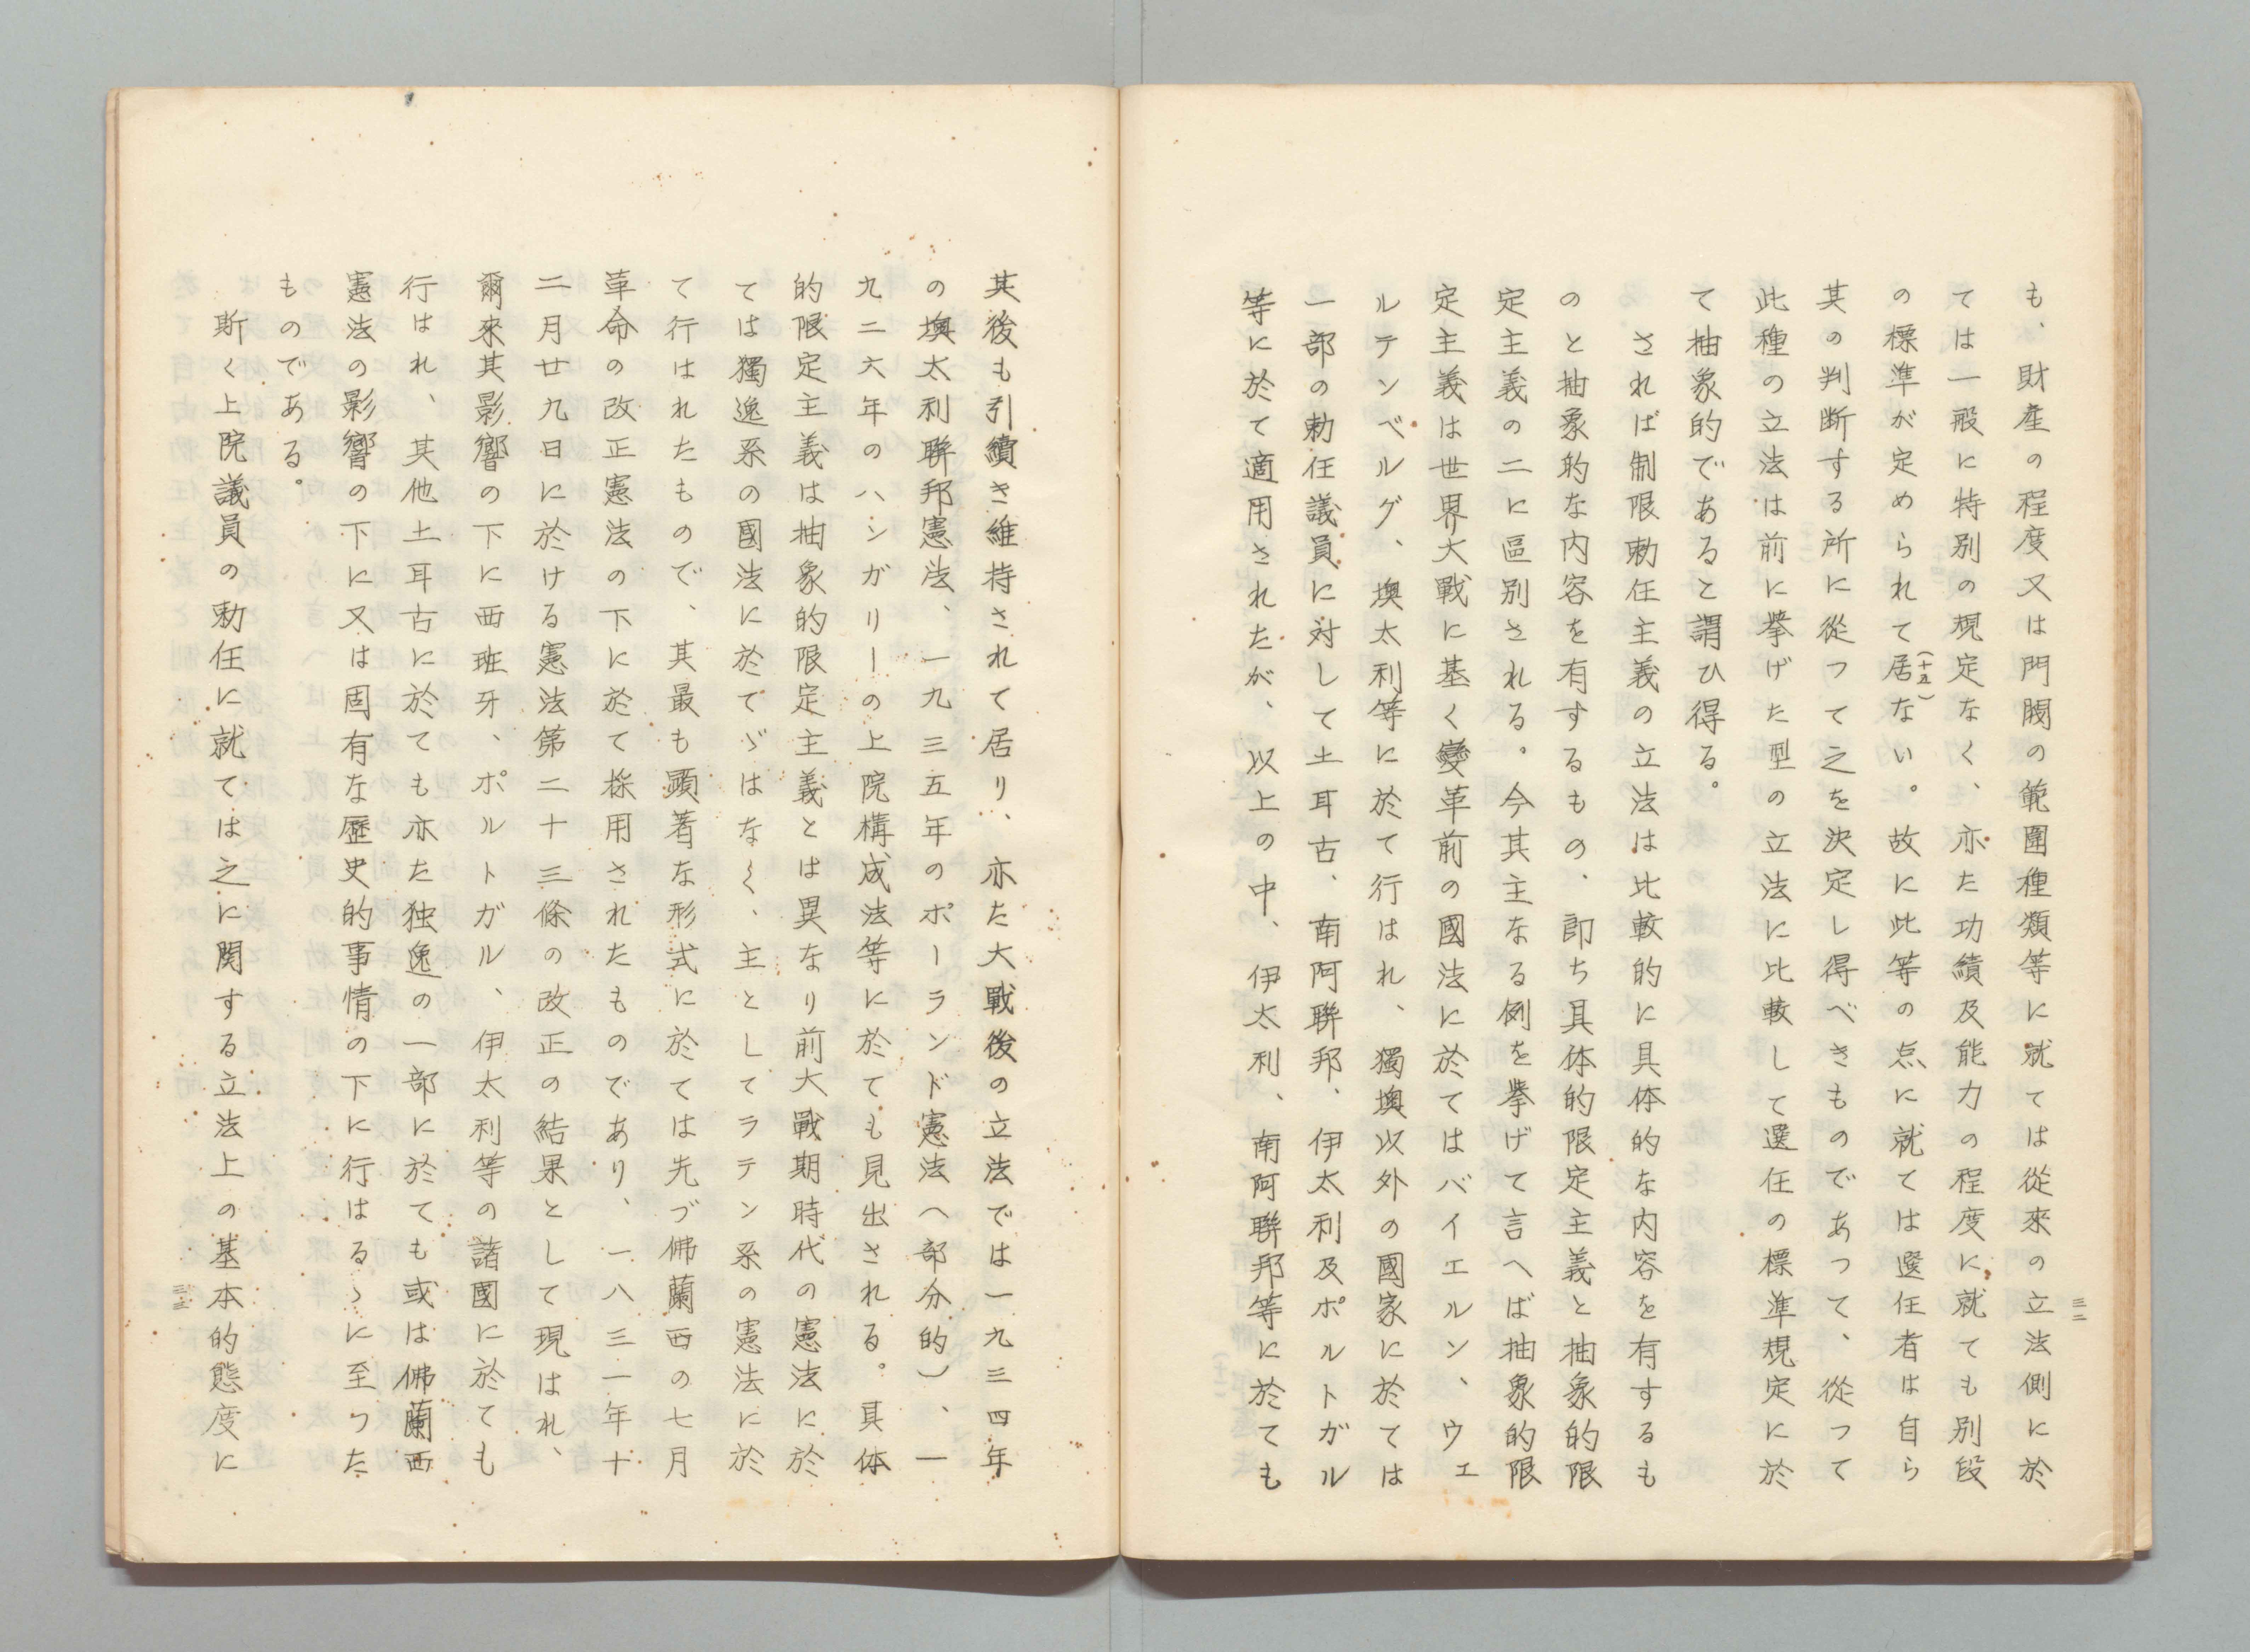 三二
も、財産の程度又は門閥の範圍種類等に就ては從來の立法側に於
ては一般に特別の規定なく、亦た功績及能力の程度に就ても別段
の標準が定められて居ない。(十五)故に此等の点に就ては選任者は自ら
其の判断する所に從つて之を決定し得べきものであつて、從つて
此種の立法は前に擧げた型の立法に比較して選任の標準規定に於
て抽象的であると謂ひ得る。
されば制限勅任主義の立法は比較的に具体的な内容を有するも
のと抽象的な内容を有するもの、即ち具体的限定主義と抽象的限
定主義の二に區別される。今其主なる例を擧げて言へば抽象的限
定主義は世界大戰に基く變革前の國法に於てはバイエルン、ウェ
ルテンベルグ、墺太利等に於て行はれ、獨墺以外の國家に於ては
一部の勅任議員に対して土耳古、南阿聯邦、伊太利及ポルトガル
等に於て適用されたが、以上の中、伊太利、南阿聯邦等に於ても
其後も引續き維持されて居り、亦た大戰後の立法では一九三四年
の墺太利聯邦憲法、一九三五年のポーランド憲法(部分的)、一
九二六年のハンガリーの上院構成法等に於ても見出される。具体
的限定主義は抽象的限定主義とは異なり前大戰期時代の憲法に於
ては獨逸系の國法に於てゞはなく、主としてラテン系の憲法に於
て行はれたもので、其最も顕著な形式に於ては先づ佛蘭西の七月
革命の改正憲法の下に於て採用されたものであり、一八三一年十
二月廿九日に於ける憲法第二十三條の改正の結果として現はれ、
爾來其影響の下に西班牙、ポルトガル、伊太利等の諸國に於ても
行はれ、其他土耳古に於ても亦た独逸の一部に於ても或は佛蘭西
憲法の影響の下に又は固有な歴史的事情の下に行はるゝに至つた
ものである。
斯く上院議員の勅任に就ては之に関する立法上の基本的態度に
三三